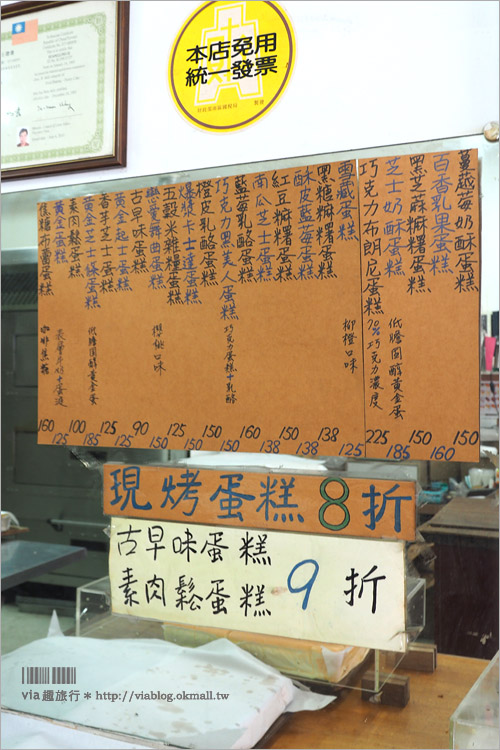 本店免用
統一發票
蔓越莓奶酥蛋糕 150
百香乳果蛋糕 160
黑芝麻麻糬蛋糕 150
芝士奶酥蛋糕 低膽固醇黃金蛋 185
巧克力布朗尼蛋糕 70%巧克力濃度 225
雪藏蛋糕 柳橙口味 125
黑糖麻糬蛋糕 138
酥皮藍莓蛋糕 138
紅豆麻糬蛋糕 150
南瓜芝士蛋糕 138
藍莓乳酪蛋糕 160
巧克力黑美人蛋糕 巧克力蛋糕+乳酪 150
橙皮乳酪蛋糕 150
爆漿卡士達蛋糕 150
五穀米雜糧蛋糕 125
戀愛舞曲蛋糕 櫻桃口味 150
古早味蛋糕 90
黃金起士蛋糕 125
香芋芝士蛋糕 125
黃金芝士條蛋糕 低膽固醇黃金蛋 185
素肉鬆蛋糕 100
黃金蛋糕 125
焦糖布蕾蛋糕 咖啡焦糖 160
現烤蛋糕8折
古早味蛋糕
素肉鬆蛋糕
9折
via趣旅行*http://viablog.okmall.tw